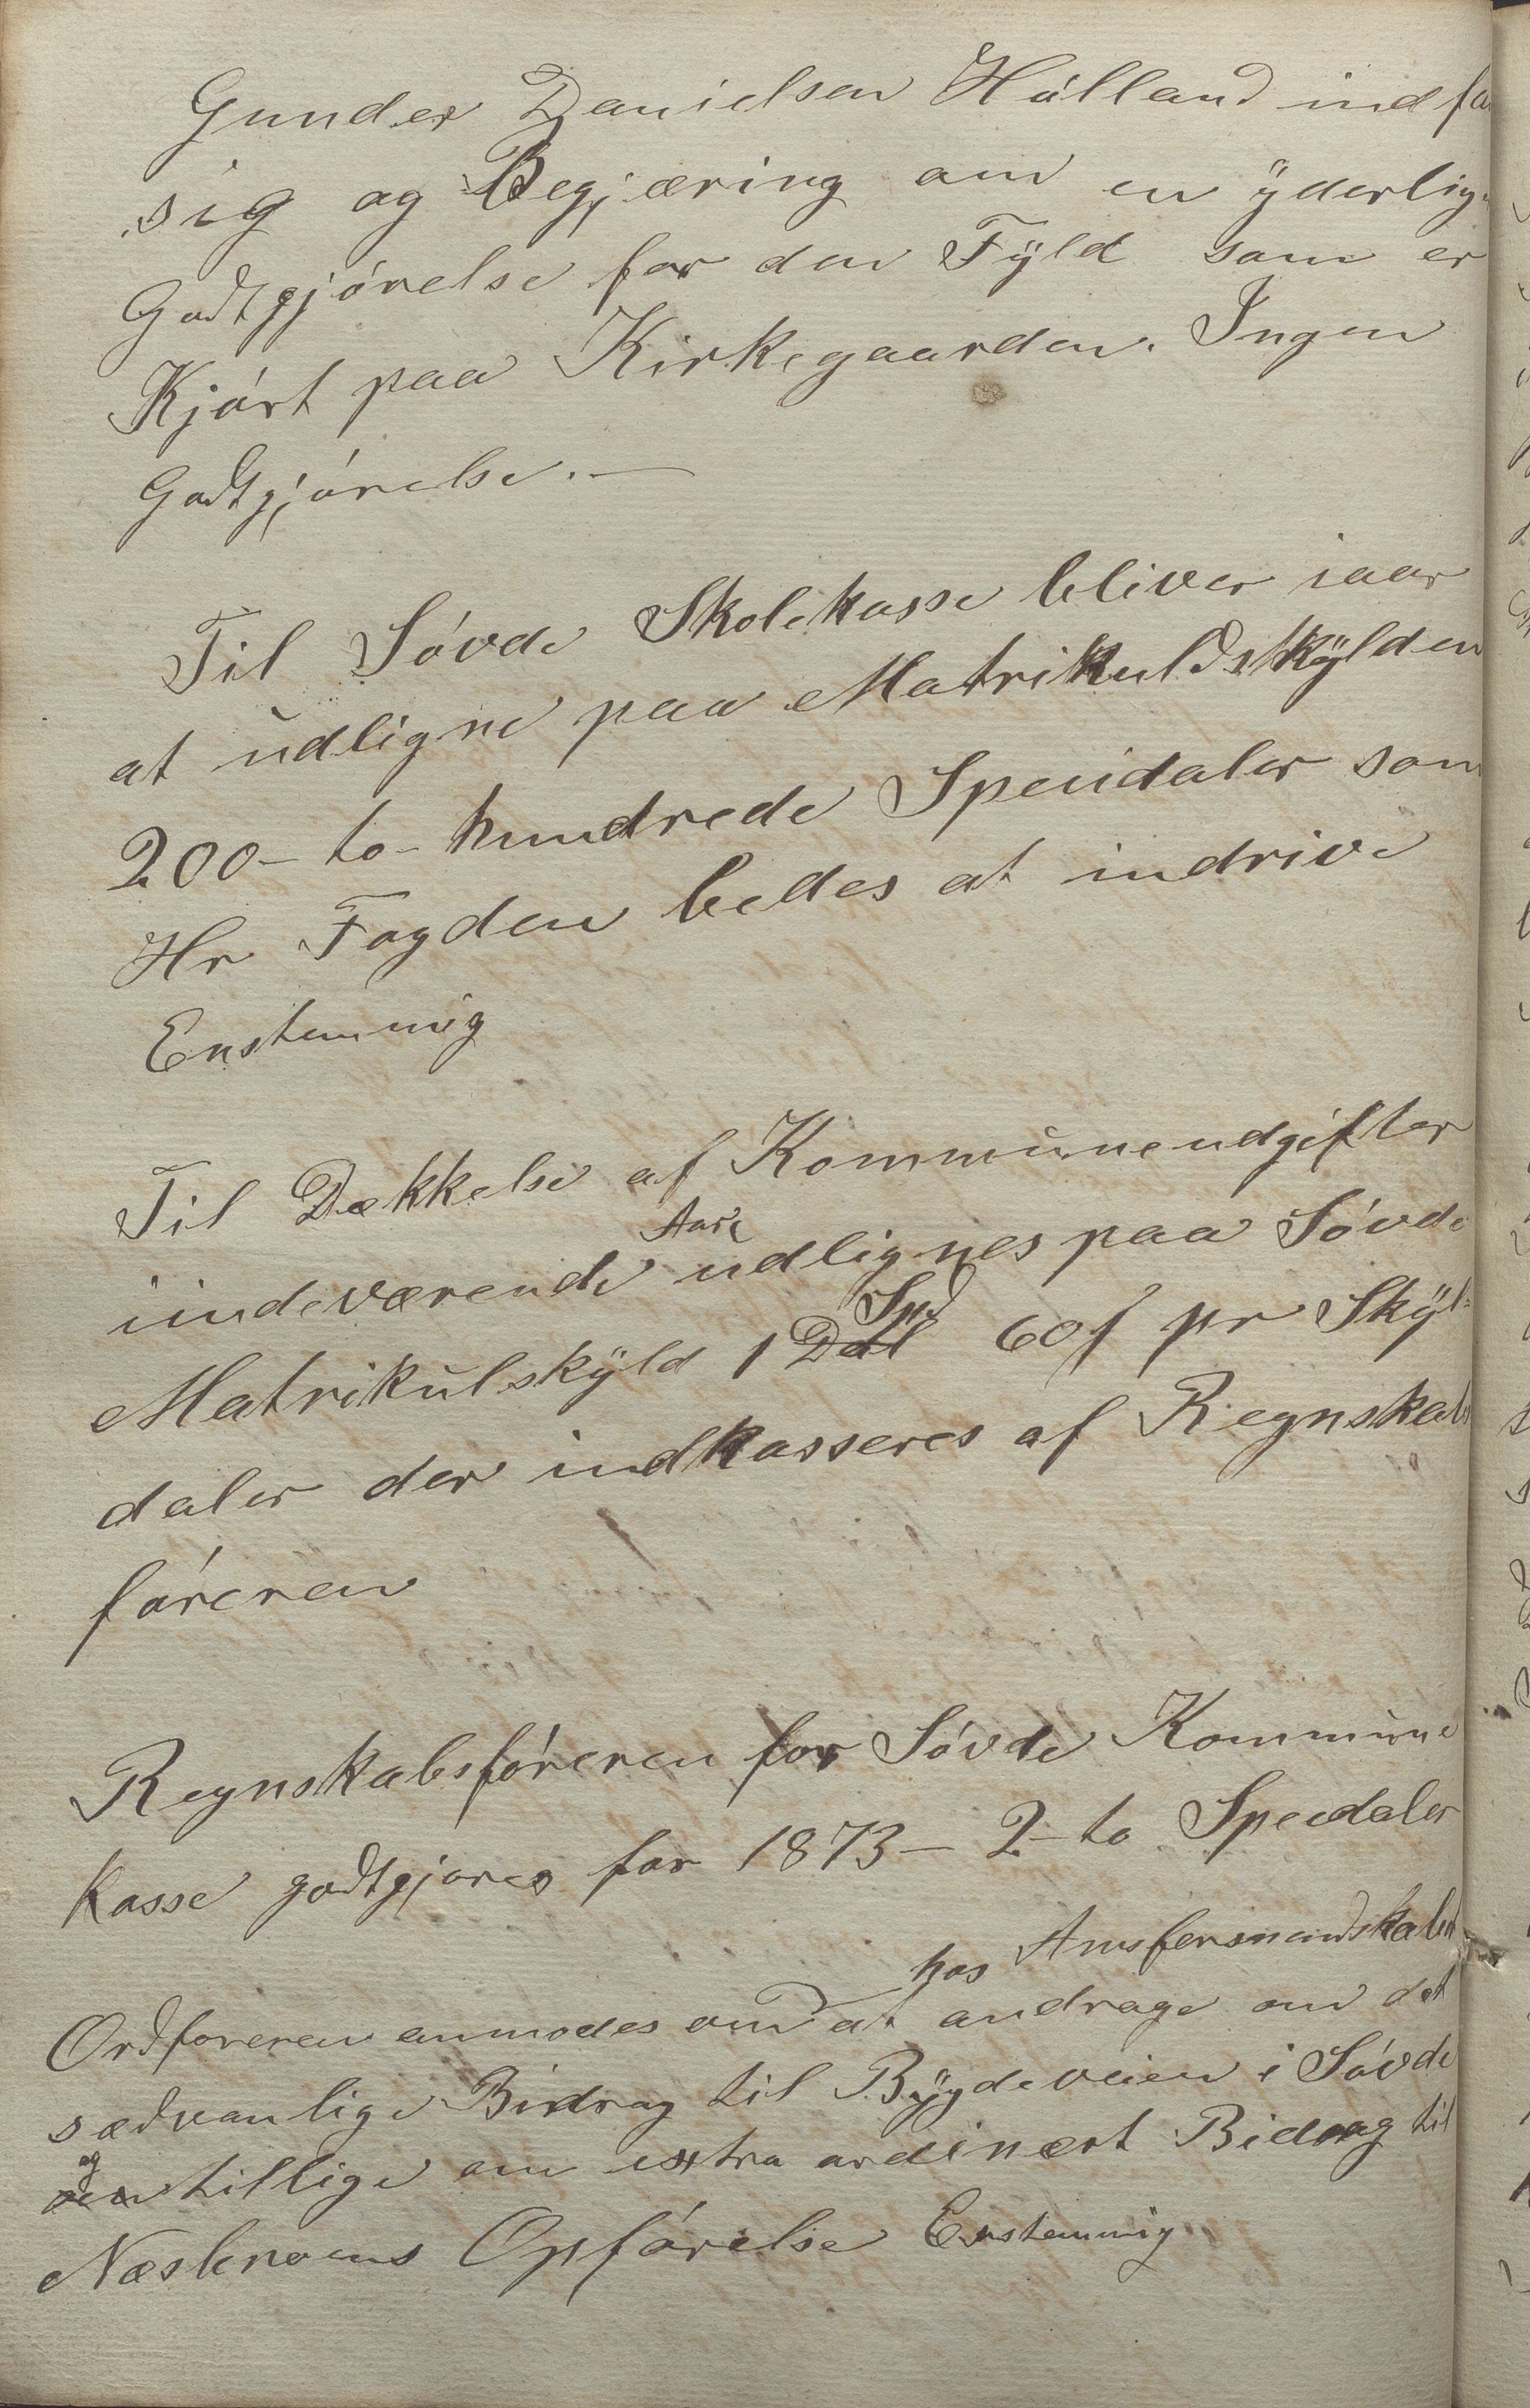 Gunder Danielsen Hålland indfa
sig og Begjæring om en yderlig
Godtgjórelse for den Fyld som er
Kjórt paa Kirkegaarden. Ingen
Godtgjórelse. —
Til Sóvde Skolekasse bliver iaar
at udligne paa Matrikuldskylden
200 - to - hundrede Specidaler som
Hr Fogden bedes at indrive
Enstemmig
Til Dækkelse af Kommuneudgifter
iindeværende Aar udlignes paa Sóvde
Matrikulskyld 1 Spd 60 ſ pr Skyl-
daler der indkasseres af Regnskabs
fóreren
Regnskabsfóreren for Sóvde Kommune
Kasse godtgjores for 1873 - 2 - to Specdaler
Ordforeren anmodes om at hos Amsformandskabet
andrage om det
sædvanlige Bidrag til Bygdeveien i Sóvde
og tillige om extra ordinært Bidrag til
Næsbroens Opfórelse Enstemmig